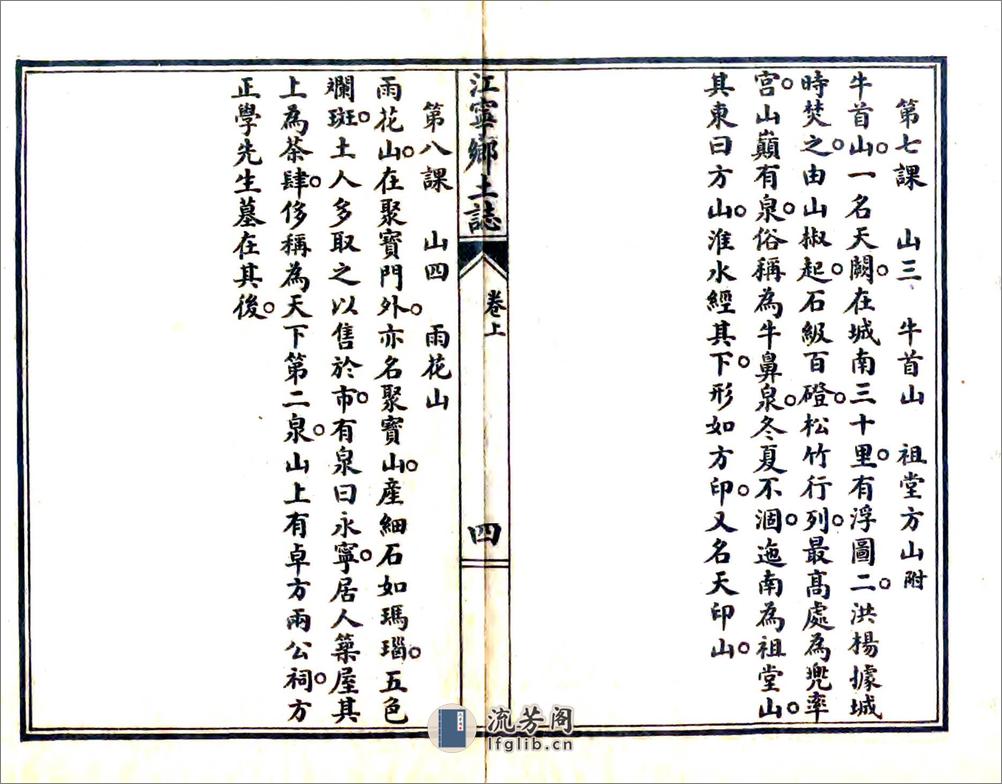 第七課　山三　牛首山　祖堂方山附
牛首山。一名天闕。在城南三十里。有浮圖二。洪楊據城
時焚之。由山椒起石級百磴。松竹行列。最高處為兜率
宮。山巔有泉。俗稱為牛鼻泉。冬夏不涸。迤南為祖堂山。
其東曰方山。淮水經其下。形如方印。又名天印山。
江寧鄉土誌　卷上　四
第八課　山四　雨花山
雨花山。在聚寶門外。亦名聚寶山。產細石如瑪瑙。五色
斕斑。土人多取之以售於市。有泉曰永寧。居人築屋其
上為茶肆。侈稱為天下第二泉。山上有卓方兩公祠。方
正學先生墓在其後。
流芳阁
lfglib.cn